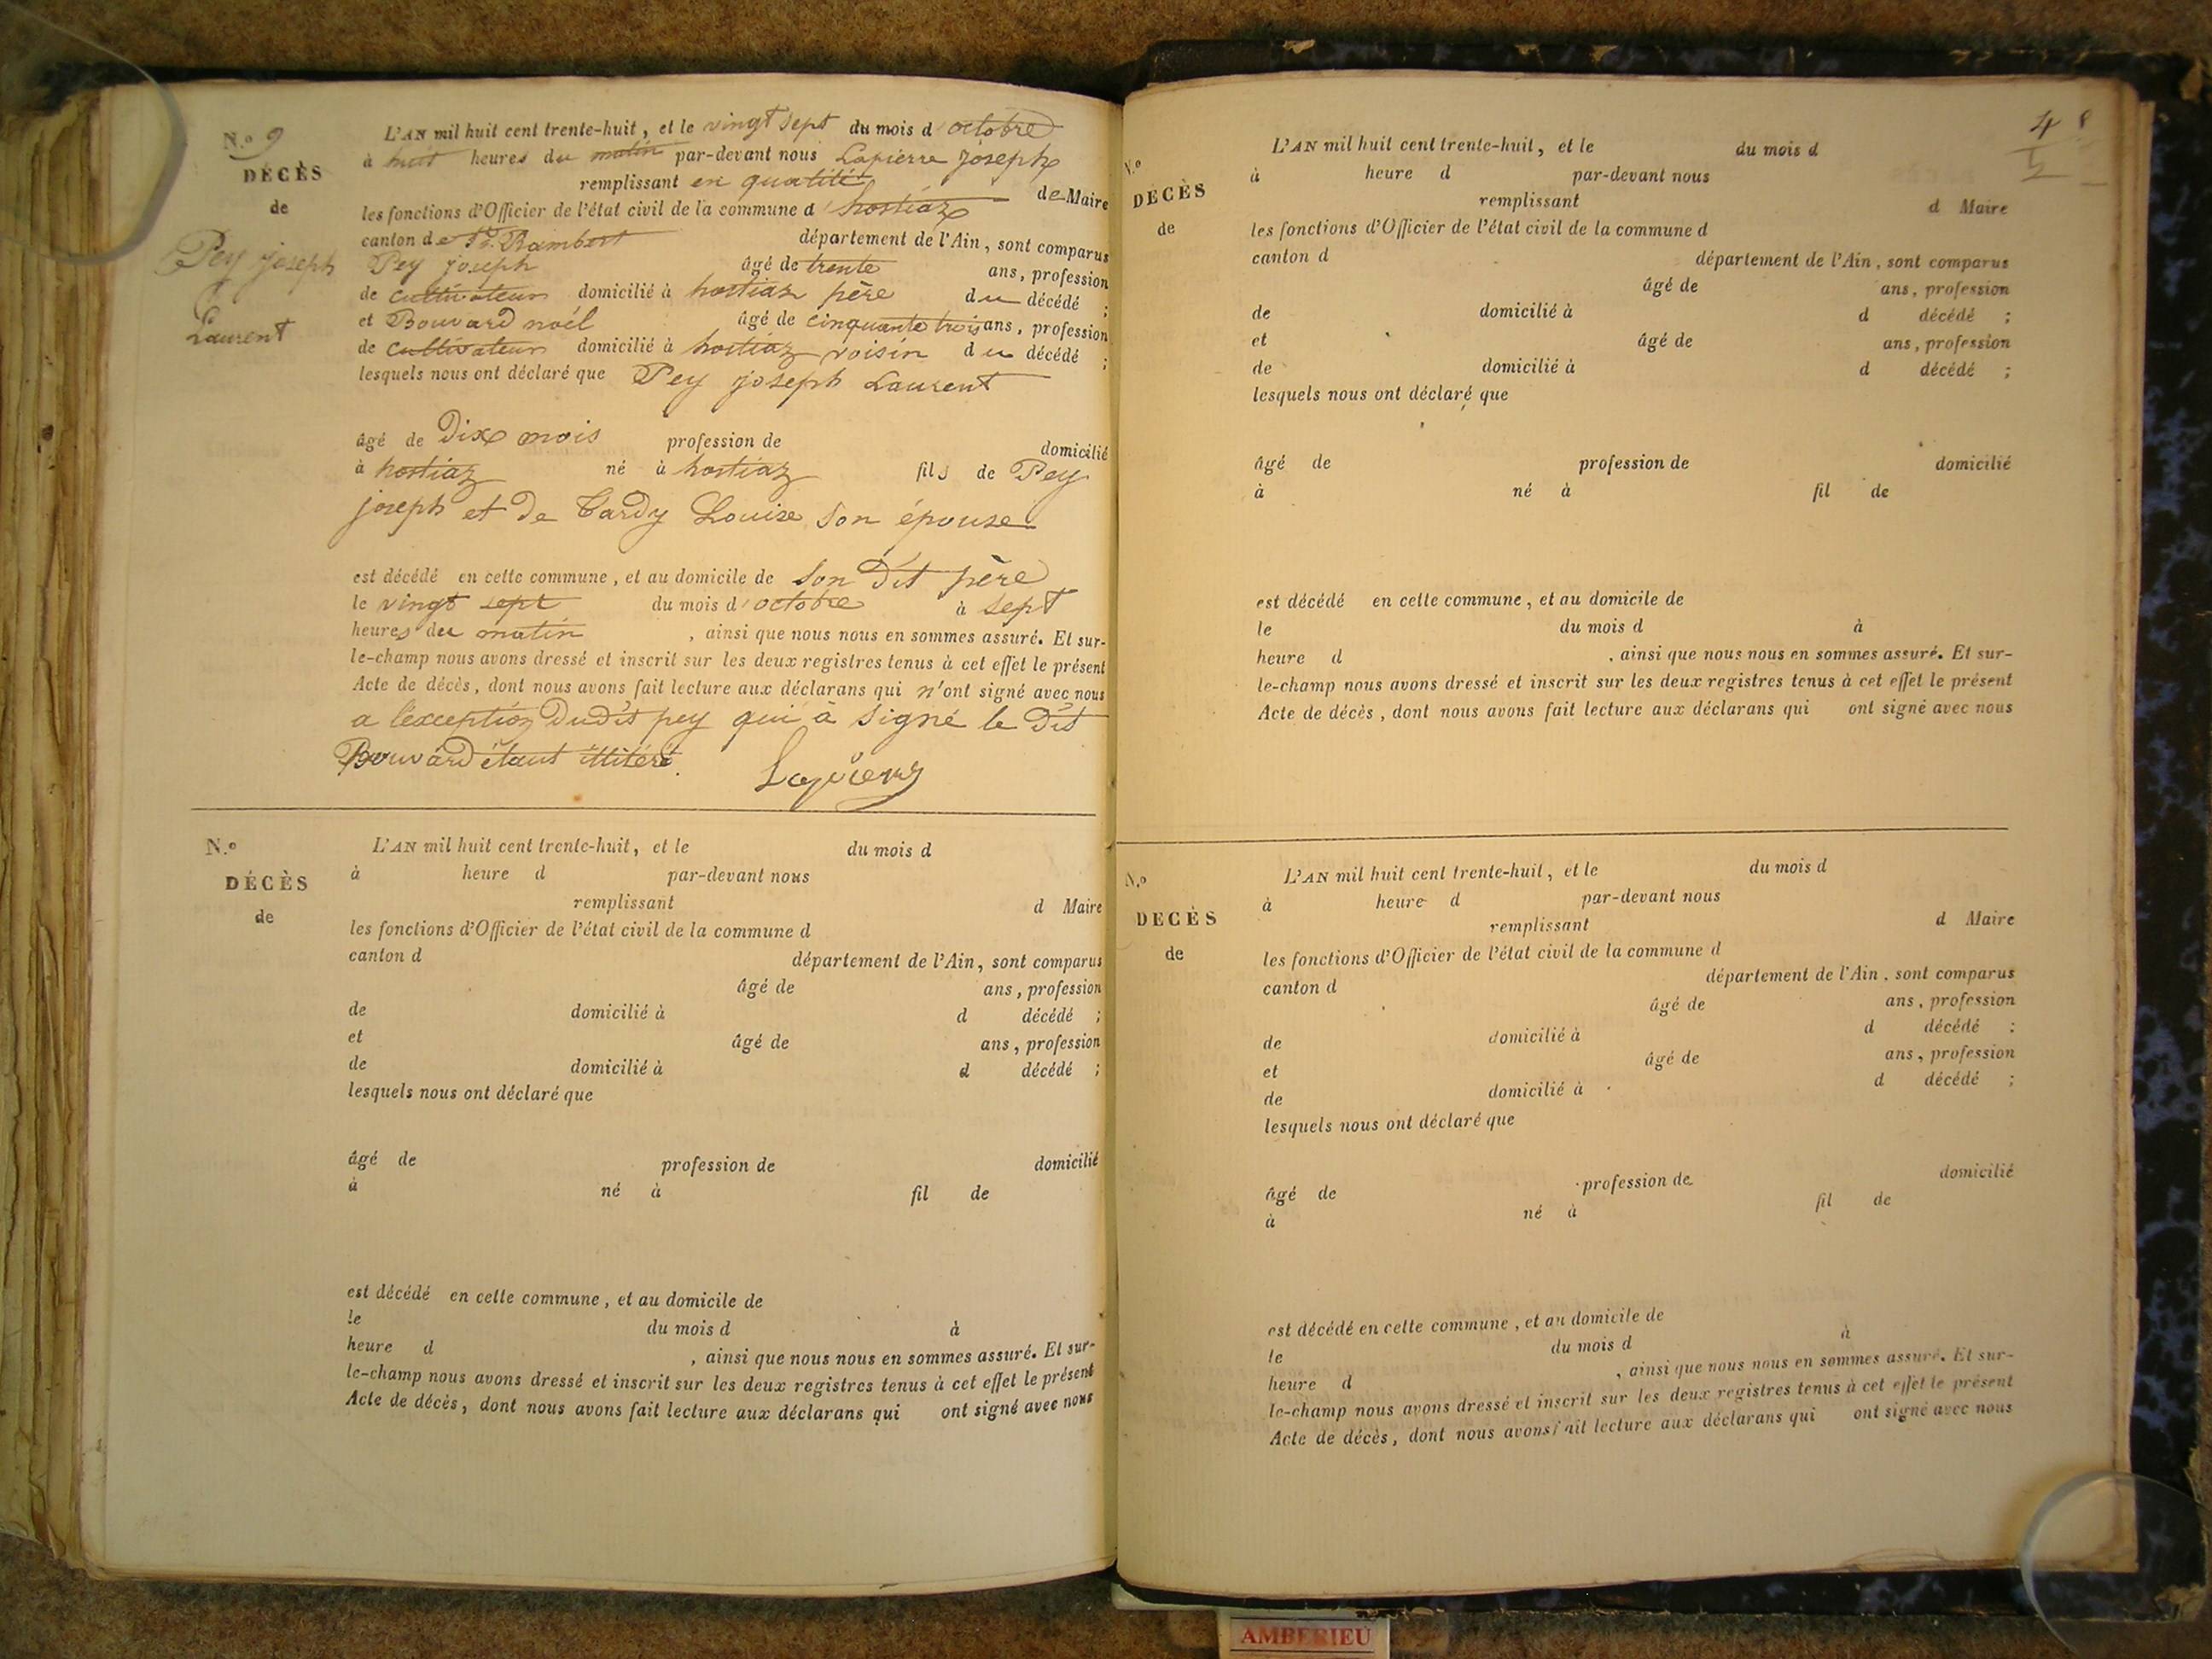 N.o 9
DÉCÈS
de
Pey joseph
Laurent
L'AN mil huit cent trente-huit, et le vingt sept du mois d'octobre
à huit heures du matin par-devant nous Lapierre joseph
remplissant en qualité de Maire
les fonctions d'Officier de l'état civil de la commune d'hostiaz
canton de St. Rambert département de l'Ain, sont comparus
Pey joseph âgé de trente ans, profession
de cultivateur domicilié à hostiaz père du décédé ;
et Bouvard noél âgé de cinquante trois ans, profession
de cultivateur domicilié à hostiaz voisin du décédé ;
lesquels nous ont déclaré que Pey joseph Laurent
âgé de Dix mois profession de domicilié
à hostiaz né à hostiaz fils de Pey
joseph et De Tardy Louise son épouse
est décédé en cette commune, et au domicile de son Dit père
le vingt sept du mois d'octobre à sept
heures du matin , ainsi que nous nous en sommes assuré. Et sur-
le-champ nous avons dressé et inscrit sur les deux registres tenus à cet effet le présent
Acte de décès, dont nous avons fait lecture aux déclarans qui n'ont signé avec nous
a l'exception Dudit pey qui à signé le Dit
Bouvard étant illitéré.
Lapierre
N.o
DÉCÈS
de
L'AN mil huit cent trente-huit, et le du mois d
à heure d par-devant nous
remplissant d Maire
les fonctions d'Officier de l'état civil de la commune d
canton d département de l'Ain, sont comparus
âgé de ans, profession
de domicilié à d décédé ;
et âgé de ans, profession
de domicilié à d décédé ;
lesquels nous ont déclaré que
âgé de profession de domicilié
à né à fil de
est décédé en cette commune, et au domicile de
le du mois d à
heure d , ainsi que nous nous en sommes assuré. Et sur-
le-champ nous avons dressé et inscrit sur les deux registres tenus à cet effet le présent
Acte de décès, dont nous avons fait lecture aux déclarans qui ont signé avec nous
48
N.o
DÉCÈS
de
L'AN mil huit cent trente-huit, et le du mois d
à heure d par-devant nous
remplissant d Maire
les fonctions d'Officier de l'état civil de la commune d
canton d département de l'Ain, sont comparus
âgé de ans, profession
de domicilié à d décédé ;
et âgé de ans, profession
de domicilié à d décédé ;
lesquels nous ont déclaré que
âgé de profession de domicilié
à né à fil de
est décédé en cette commune, et au domicile de
le du mois d à
heure d , ainsi que nous nous en sommes assuré. Et sur-
le-champ nous avons dressé et inscrit sur les deux registres tenus à cet effet le présent
Acte de décès, dont nous avons fait lecture aux déclarans qui ont signé avec nous
N.o
DECÈS
de
L'AN mil huit cent trente-huit, et le du mois d
à heure d par-devant nous
remplissant d Maire
les fonctions d'Officier de l'état civil de la commune d
canton d département de l'Ain, sont comparus
âgé de ans, profession
de domicilié à d décédé ;
et âgé de ans, profession
de domicilié à d décédé ;
lesquels nous ont déclaré que
âgé de profession de domicilié
à né à fil de
est décédé en cette commune, et au domicile de
le du mois d à
heure d , ainsi que nous nous en sommes assuré. Et sur-
le-champ nous avons dressé et inscrit sur les deux registres tenus à cet effet le présent
Acte de décès, dont nous avons fait lecture aux déclarans qui ont signé avec nous
AMBERIEU